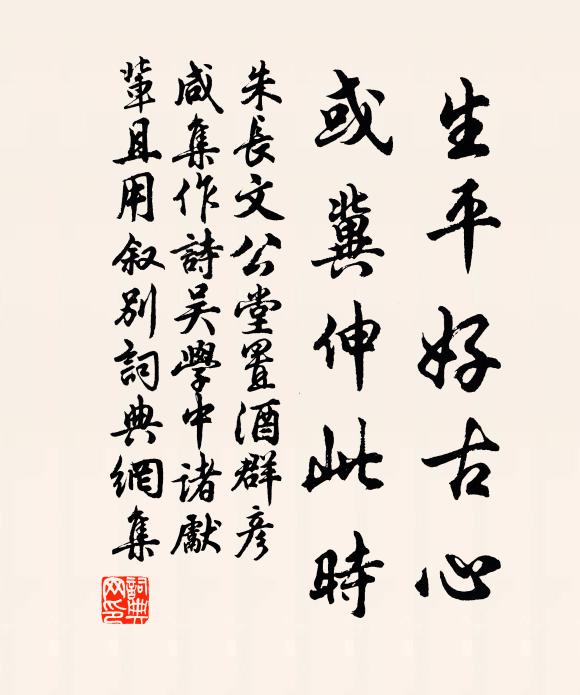 生平好古心
或冀伸此時
朱長文公堂置酒群彦
咸集作詩吴學中諸獻
輩且用叙别詞典網集
詞典
网印